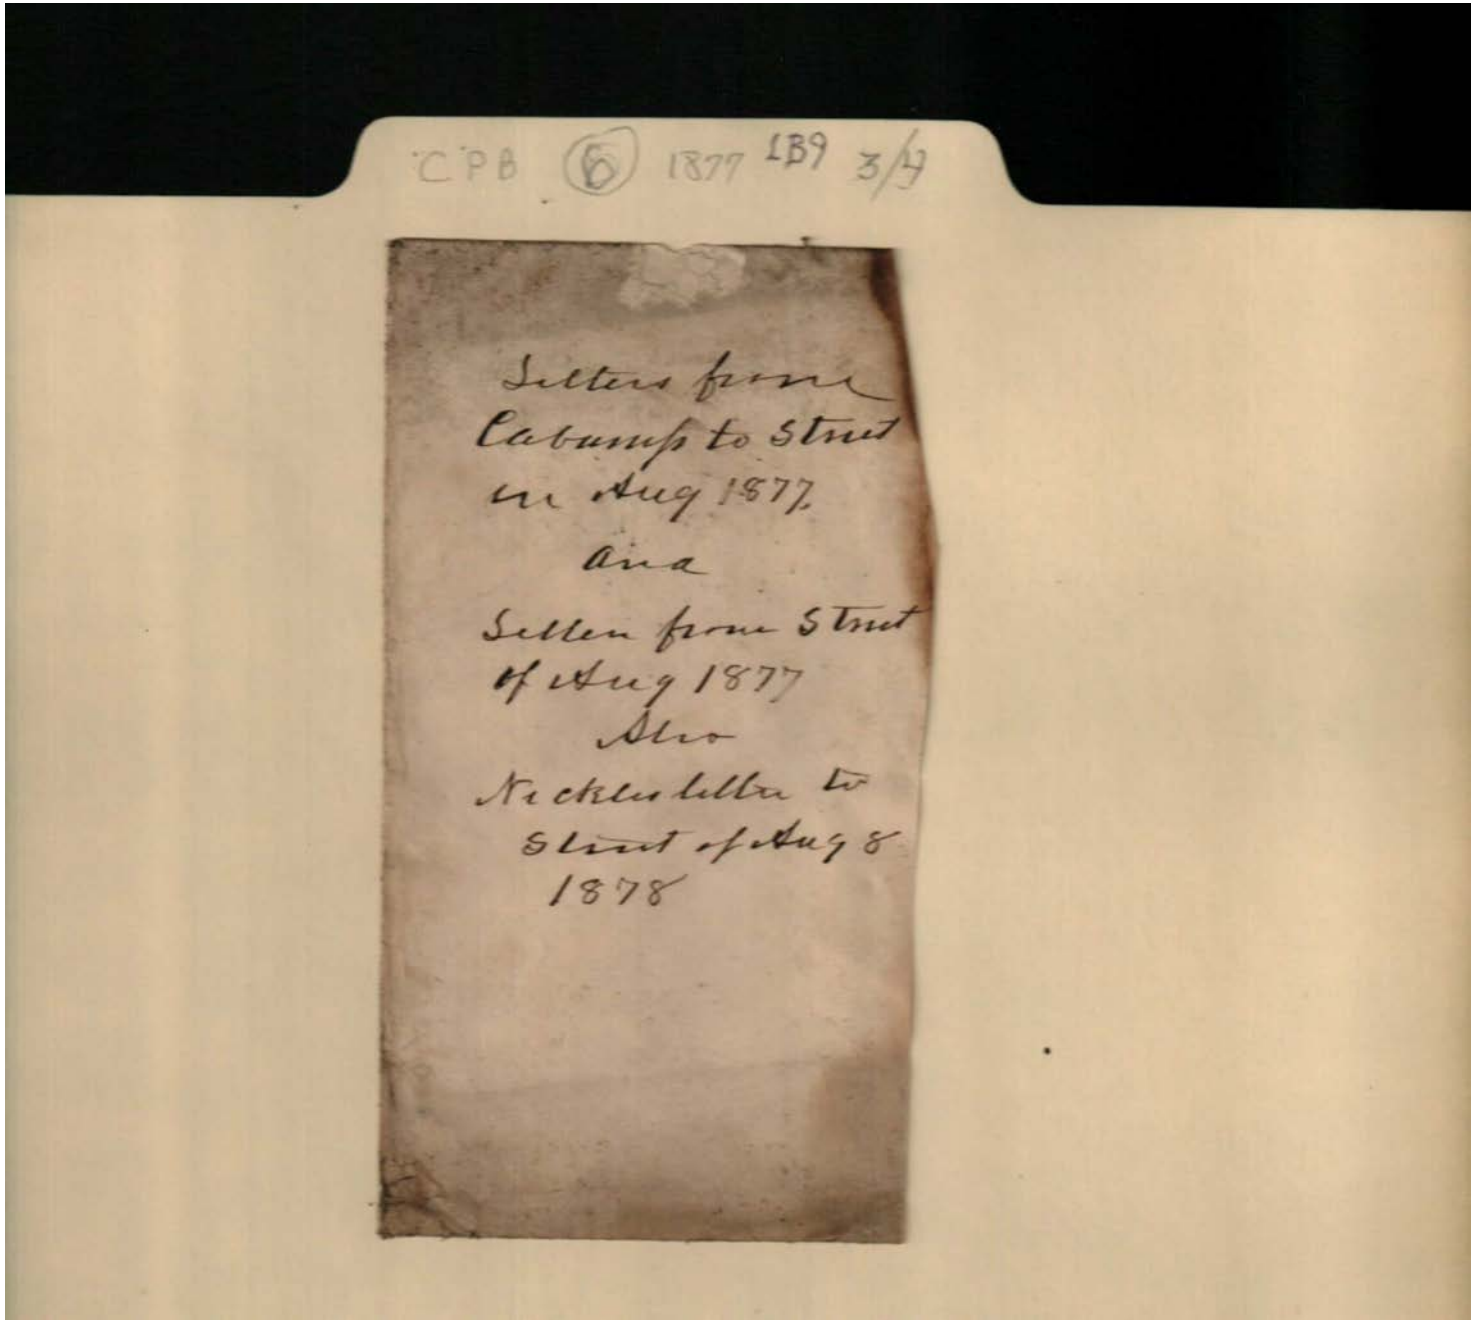 CPB 6 1877 LB9 3/4
Letters from
to Street
in Aug 1877
and
Letter from Street
of Aug 1877
Also
Nickles letter to
Street of Aug 8
1878